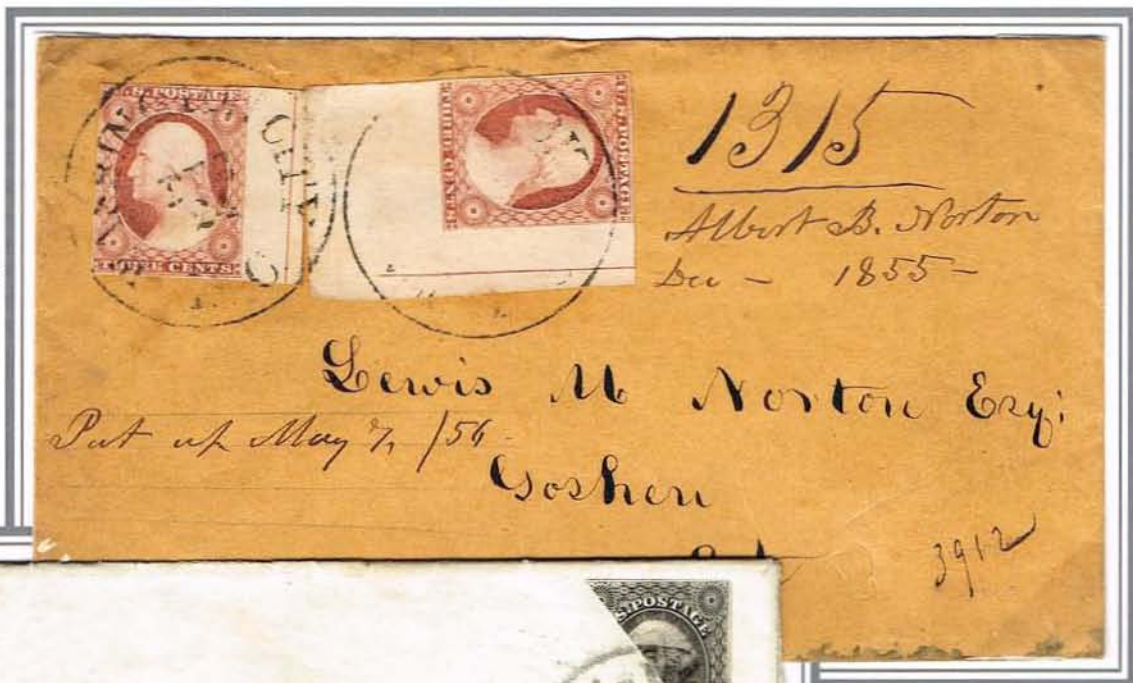 U.S. POSTAGE
THREE CENTS
U.S. POSTAGE
THREE CENTS
1315
Albert B. Norton
Dec - 1855 -
Lewis M Norton Esq:
Put up May 7, /56
Goshen
3912
U.S. POSTAGE